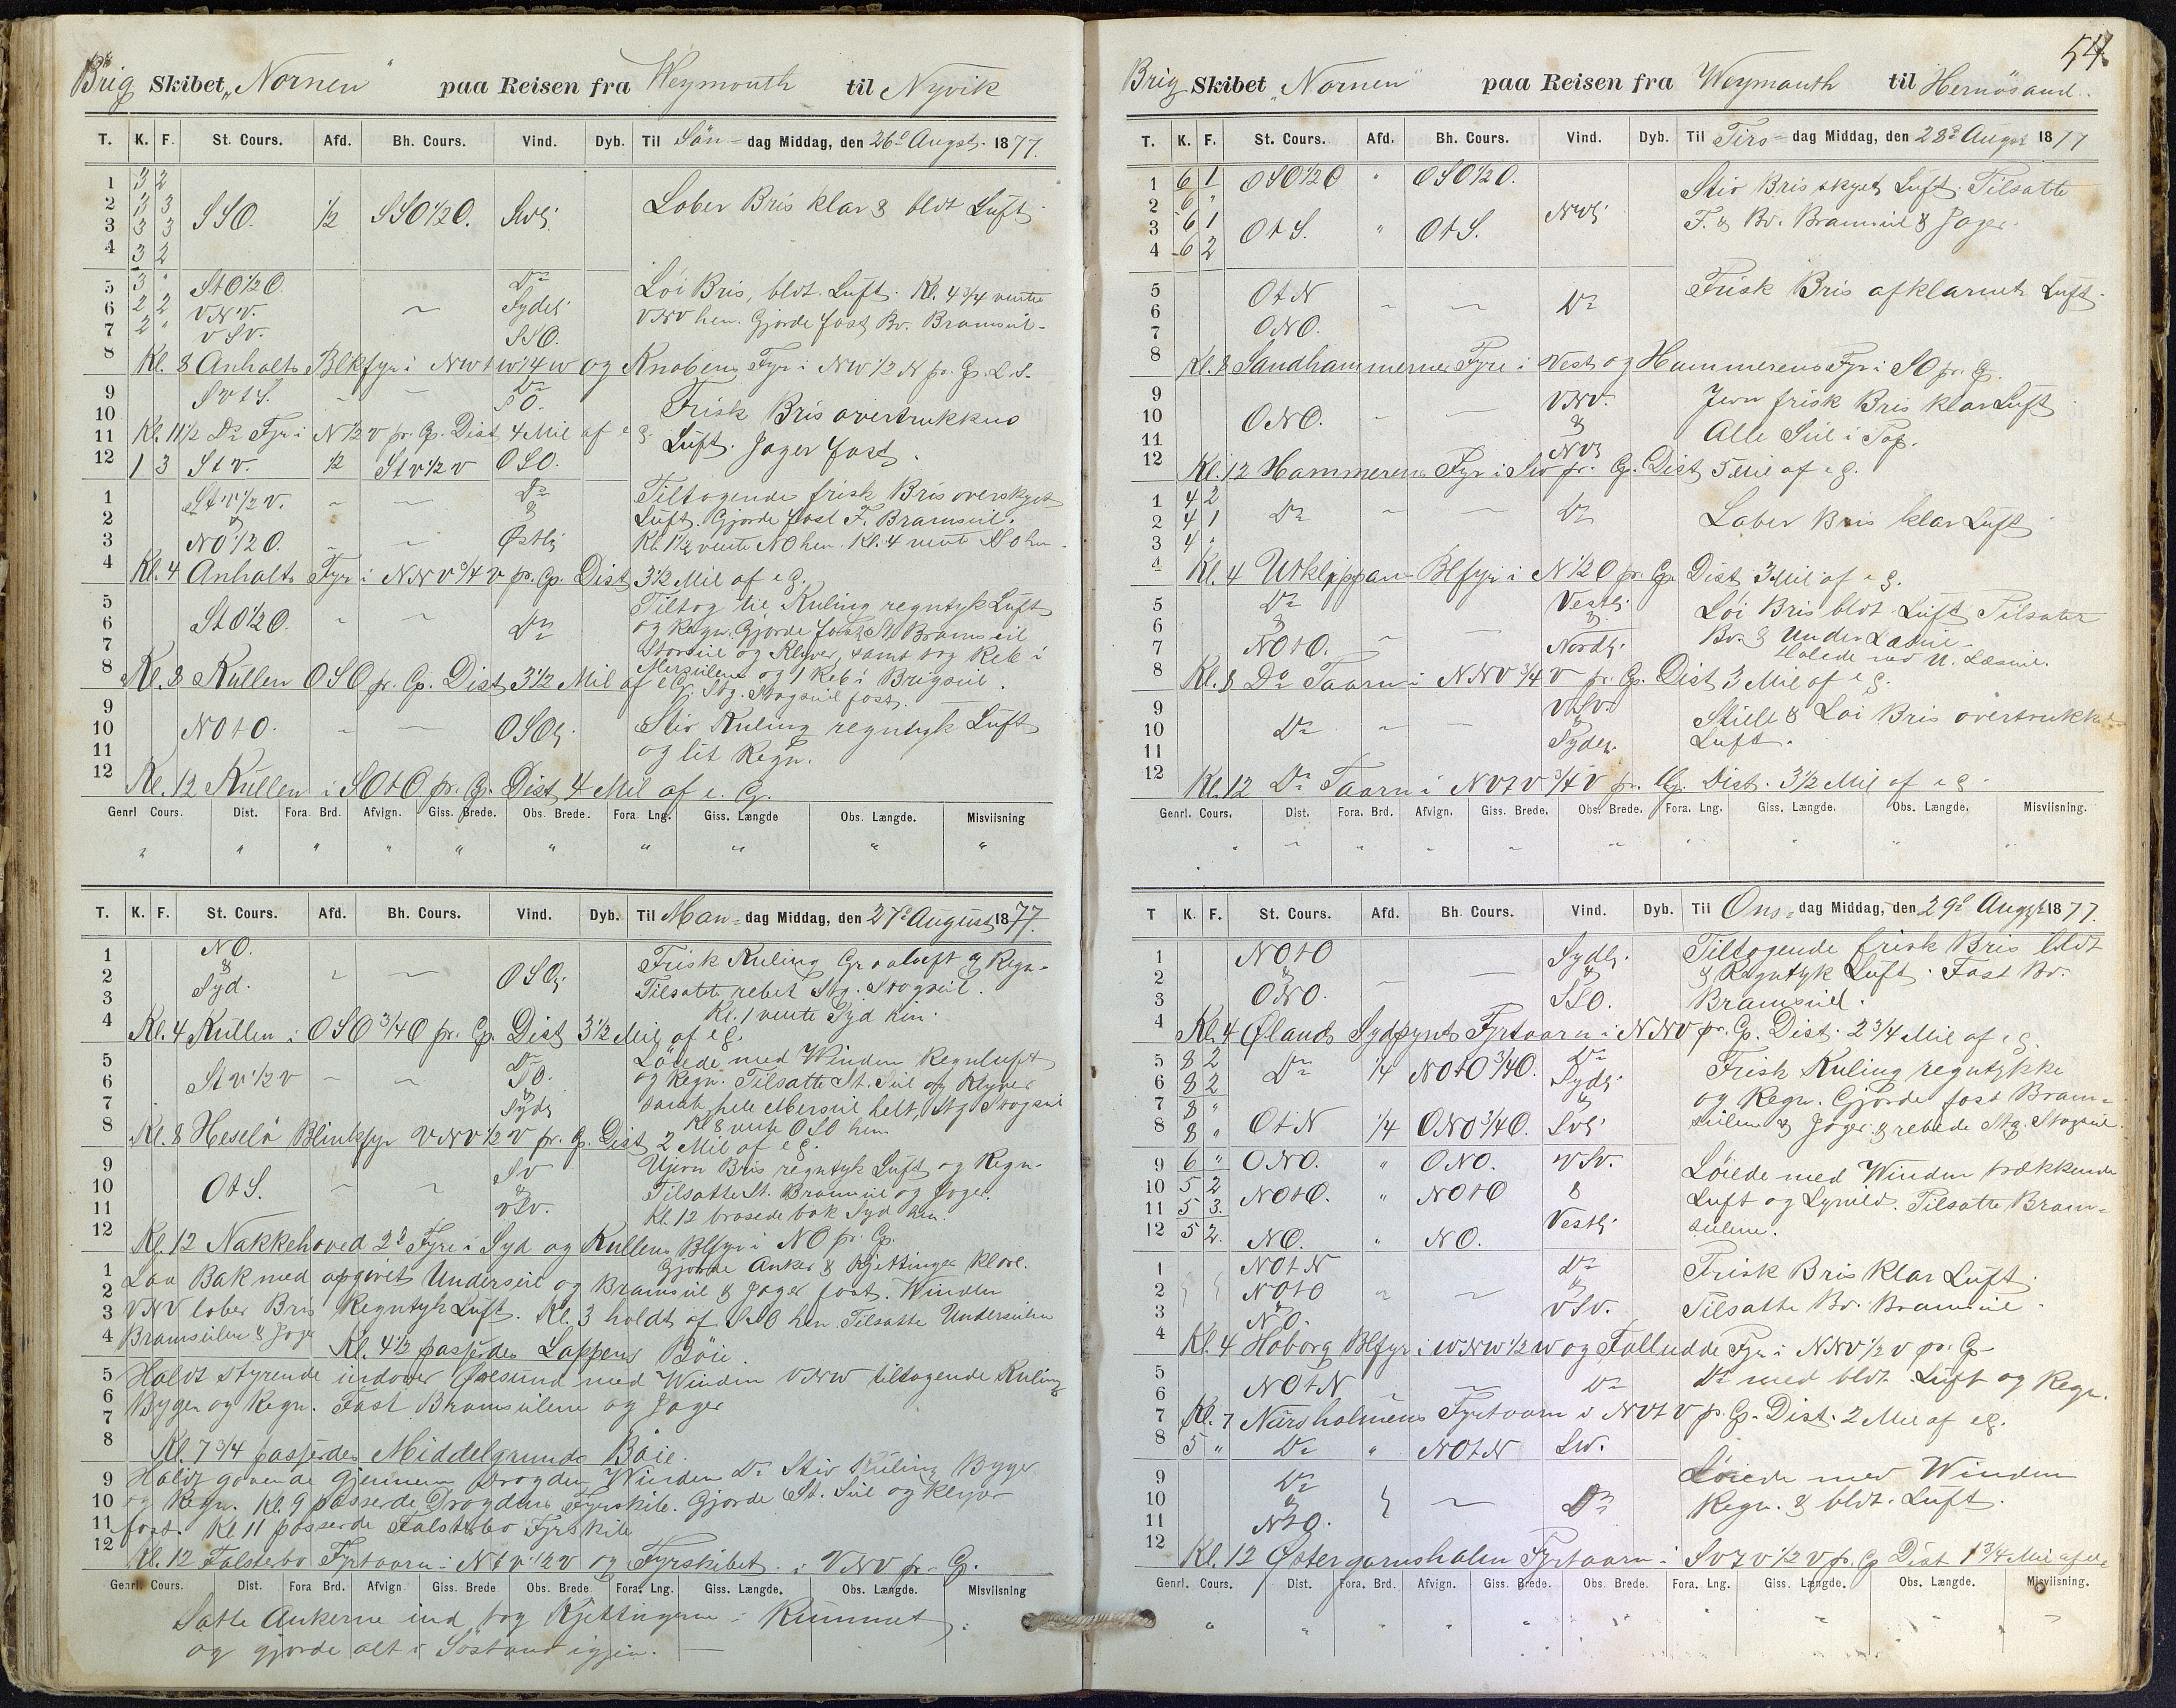 Brig Skibet „Nornen" paa Reisen fra Weymouth til Nyvik
T. K. F. St. Cours. Afd. Bh. Cours. Vind. Dyb. Til Sön- dag Middag, den 26de Augst. 1877.
1 3 2
2 3 3 SSO. ½ SSO½O. Svlg. Laber Bris klar & bldt Luft
3 3 3
4 3 2
5 3 " StO½O. Do Löi Bris, bldt. Luft. Kl. 4¾ vente
6 2 2 VNV. Sydlg VNV hen. Gjorde fast Bv. Bramseil-
7 2 " VSV. SSO.
8 Kl. 8 Anholts Blkfyr i NWtW¼W og Knobens Fyr i NW½N pr. Cp. L.S.
9 SVtS. Do Frisk Bris overtrukken
10 SO.
11 Kl. 11½ Do Fyr i N½V pr. Cp. Dist 4 Mil af eg. Luft. Jager fast.
12 1 3 StV. ½ StV½V OSO.
1 StV½V. Do Tiltagende frisk Bris overskyet
2 & & Luft. Gjorde fast F. Bramseil.
3 NO½O. Østlig Kl. 1½ vente NO hen. Kl. 4 vente SO hen
4 Kl. 4 Anholts Fyr i NNV¾V pr. Cp. Dist 3½ Mil af eg.
5 Tiltog til Kuling regntyk Luft
6 StO½O. Do og Regn. Gjorde fast St. Bramseil
7 Storseil og Klyver, samt tog Reb i
8 Kl. 8 Kullen OSO pr. Cp. Dist 3½ Mil af eg. Mersseilene og 1 Reb i Brigseil.
Stg. Stagseil fast.
9 Stiv Kuling regntyk Luft
10 NOtO. OSOlg. og lit Regn.
11
12 Kl. 12 Kullen i SOtO pr. Cp. Dist 4 Mil af e. G.
Genrl Cours. Dist. Fora. Brd. Afvign. Giss. Brede. Obs. Brede. Fora. Lng. Giss. Længde Obs. Længde. Misviisning
T. K. F. St. Cours. Afd. Bh. Cours. Vind. Dyb. Til Man- dag Middag, den 27de August 1877.
1 NO. Frisk Kuling Graaluft & Regn-
2 & OSOlg Tilsatte rebet Stg. Stagseil.
3 Syd. Kl. 1 vente Syd hen.
4 Kl. 4 Kullen i OSO¾O pr. Cp. Dist 3½ Mil af eg.
5 Do Löiede med Winden Regnluft
6 StV½V SO. og Regn. Tilsatte St. Seil og Klyver
7 & Sydlg samt hele Merseil helt, Stg Stagseil
8 Kl. 8 Heselö Blinkfyr VNV½V pr. Cp. Dist 2 Mil af eg. Kl 8 vente OSO hen
9 SV Ujevn Bris regntyk Luft og Regn.
10 OtS. & Tilsatte St. Bramseil og Jager.
11 VSV. Kl. 12 brasede bak Syd hen.
12 Kl. 12 Nakkehoved 2de Fyre i Syd og Kullens Blfyr i NO pr. Cp.
Gjorde Anker & Kjettinger klare.
1 Laa Bak med opgivet Underseil og Bramseil & Jager fast. Winden
2
3 VNV laber Bris Regntyk Luft. Kl. 3 holdt af SSO hen. Tilsatte Underseilen
4 Bramseilene & Jager Kl. 4½ passerdes Lappens Böie.
5 Holdt styrende indover Øresund med Winden VNW tiltagende Kuling
6 Byger og Regn. Fast Bramseilene og Jager
7
8 Kl. 7¾ passerdes Middelgrunds Böie.
9 Holdt gaaende gjennem Drogden Winden Do Stiv Kuling Byger
10 og Regn. Kl. 9 passerde Drogdens Fyrskib. Gjorde St. Seil og Klyver
11 fast. Kl 11 passerde Falsterbo Fyrskib
12 Kl. 12 Falsterbo Fyrtaarn i NtV½V og Fyrskibet i VNV pr. Cp.
Genrl. Cours. Dist. Fora Brd. Afvign Giss. Brede Obs. Brede. Fora. Lng. Giss. Længde. Obs. Længde. Misviisning
Satte Ankerne ind tog Kjettingerne i Rummet
og gjorde alt i Söstand igjen.
54.
Brig Skibet „Nornen" paa Reisen fra Weymouth til Hernösand.
T. K. F. St. Cours. Afd. Bh. Cours. Vind. Dyb. Til Tirs- dag Middag, den 28de Augst 1877
1 6 1 OSO½O " OSO½O. Stiv Bris skyet Luft. Tilsatte
2 6 " NVlg F. & Bv. Bramseil & Jager.
3 6 1 OtS. " OtS.
4 6 2
5 OtN Do Frisk Bris afklarnet Luft.
6
7 ONO.
8 Kl. 8 Sandhammernes Fyre i Vest og Hammerens Fyr i SO pr. Cp.
9 VNV. Jevn frisk Bris klar Luft
10 ONO. & Alle Seil i Top.
11 NVlg
12 Kl. 12 Hammerens Fyr i SV pr. Cp. Dist 5 Mil af eg.
1 4 2
2 4 1 Do Do Laber Bris klar Luft
3 4 "
4 Kl. 4 Utklippan Blfyr i N½O pr. Cp. Dist 3 Mil af eg.
5 Do Vestlig Löi Bris bldt. Luft Tilsatte
6 & & Bv. & Under Læseil-
7 NOtO. Nordlg. Halede ned U. Læseil.
8 Kl. 8 Do Taarn i NNV¾V pr. Cp. Dist 3 Mil af eg.
9 VSV. Stille & Löi Bris overtrukket
10 Do & Luft.
11 Sydlg.
12 Kl. 12 Do Taarn i NVtV¾V pr. Cp. Dist. 3½ Mil af eg
Genrl. Cours. Dist. Fora. Brd. Afvign. Giss. Brede. Obs. Brede. Fora. Lng. Giss. Længde. Obs. Længde. Misviisning.
T K. F. St. Cours. Afd. Bh. Cours. Vind. Dyb. Til Ons- dag Middag, den 29de Augst 1877.
1 NOtO Sydlg. Tiltagende frisk Bris bldt
2 & & & Regntyk Luft. Fast Bv.
3 ONO. SSO. Bramseil.
4 Kl. 4 Ølands Sydpynts Fyrtaarn i NNV pr. Cp. Dist. 2¾ Mil af eg.
5 8 2 Do ¼ NOtO¾O. Do Frisk Kuling regntykke
6 8 2 Sydlg og Regn. Gjorde fast Bram-
7 8 " &
8 8 " OtN ¼ ONO¾O. SVlg. seilene & Jager & rebede Stg. Stagseil.
9 6 " ONO. " ONO. VSV. Löiede med Winden trækkende
10 5 2 NOtO. " NOtO & Luft og Lynild. Tilsatte Bram-
11 5 3. Vestlg seilene.
12 5 2. NO. " NO.
1 NOtN Do Frisk Bris Klar Luft.
2 NOtO &
3 NO. VSV. Tilsatte Bv. Bramseil.
4 Kl. 4 Hoborg Blfyr i WNW½W og Falludde Fyr i NNV½V pr. Cp
5 Do med bldt. Luft og Regn.
6 NOtN Do
7 Kl. 7 Närsholmens Fyrtaarn i NVtV pr. Cp. Dist. 2 Mil af eg.
8 5 " Do " NOtN SW.
9 Do Löiede med Winden
10 & Do Regn. & bldt. Luft.
11 NtO.
12 Kl. 12 Østergarnsholm Fyrtaarn i SVtV½V pr. Cp Dist 1¾ Mil af eg
Genrl. Cours. Dist. Fora. Brd. Afvign. Giss. Brede. Obs. Brede. Fora. Lng. Giss. Længde. Obs. Længde. Misviisning.